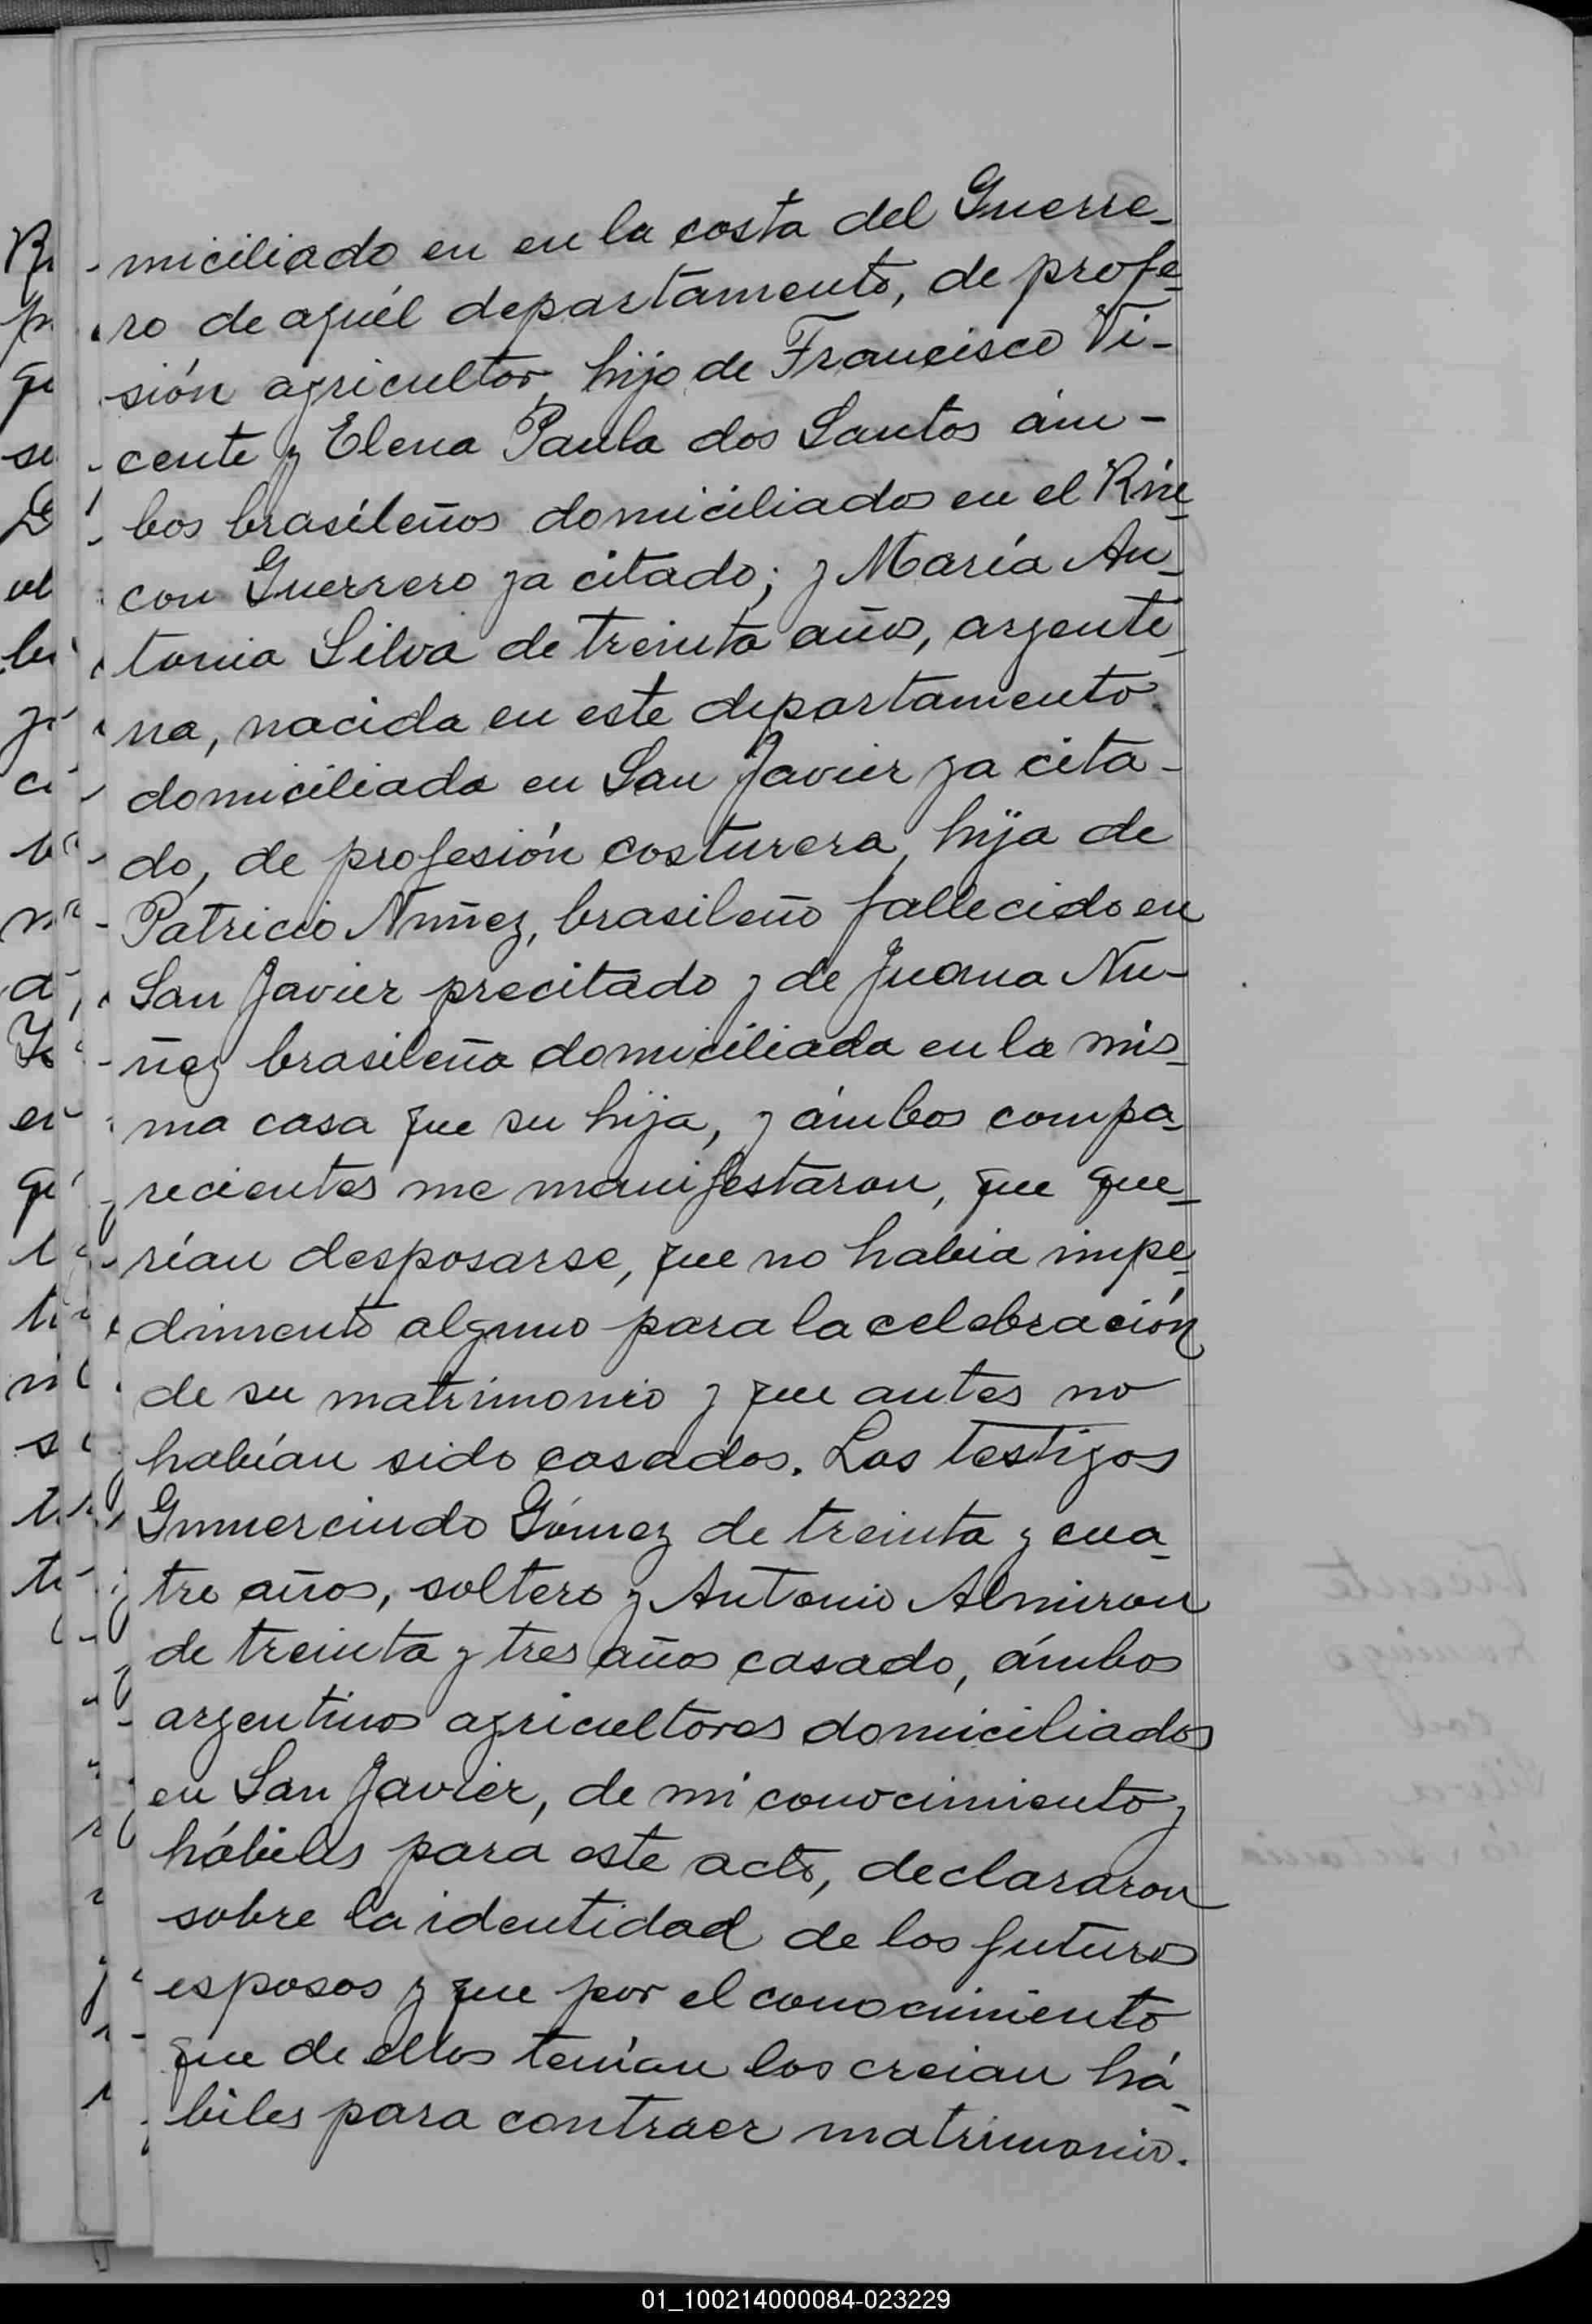 miciliado en en la costa del Guerre-
ro de aquél departamento, de profe-
sión agricultor, hijo de Francisco Vi-
cente y Elena Paula dos Santos ám-
bos brasileños domiciliados en el Rin-
con Guerrero ya citado; y María An-
tonia Silva de treinta años, argenti-
na, nacida en este departamento.
domiciliada en San Javier ya cita-
do, de profesión costurera, hija de
Patricio Nuñez, brasileño fallecido en
San Javier precitado y de Juana Nu-
ñez brasileña domiciliada en la mis-
ma casa que su hija, y ámbos compa-
recientes me manifestaron, que que-
rían desposarse, que no habia impe-
dimento alguno para la celebración
de su matrimonio y que antes no
habían sido casados. Los testigos
Gumercindo Gómez de treinta y cua-
tro años, soltero y Antonio Almiron
de treinta y tres años casado, ámbos
argentinos agricultores domiciliados
en San Javier, de mi conocimiento y
hábiles para este acto, declararon
sobre la identidad de los futuros
esposos y que por el conocimiento
que de ellos tenían los creian há-
biles para contraer matrimonio.
01_100214000084-023229